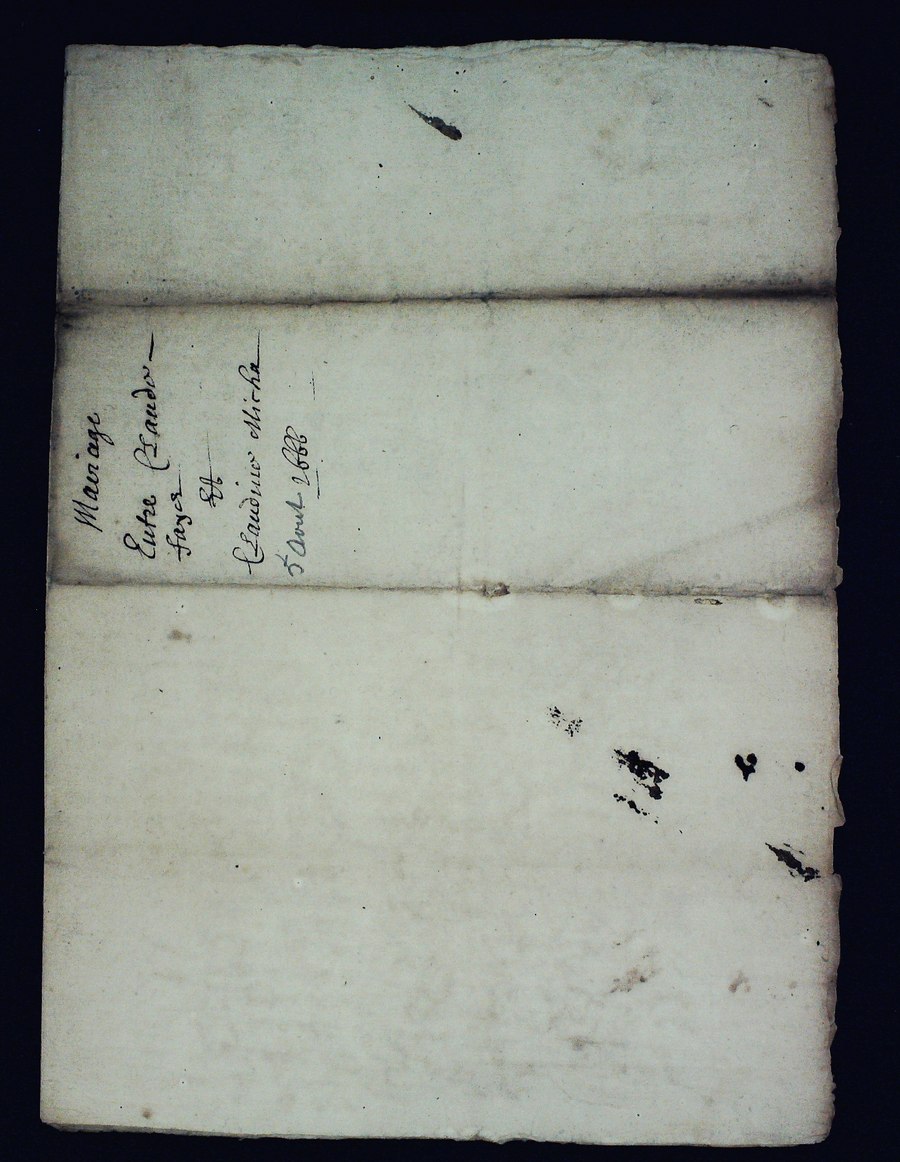 Mariage
Entre Claude
fayet
Et
Claudine Micha
5 Aout 1666